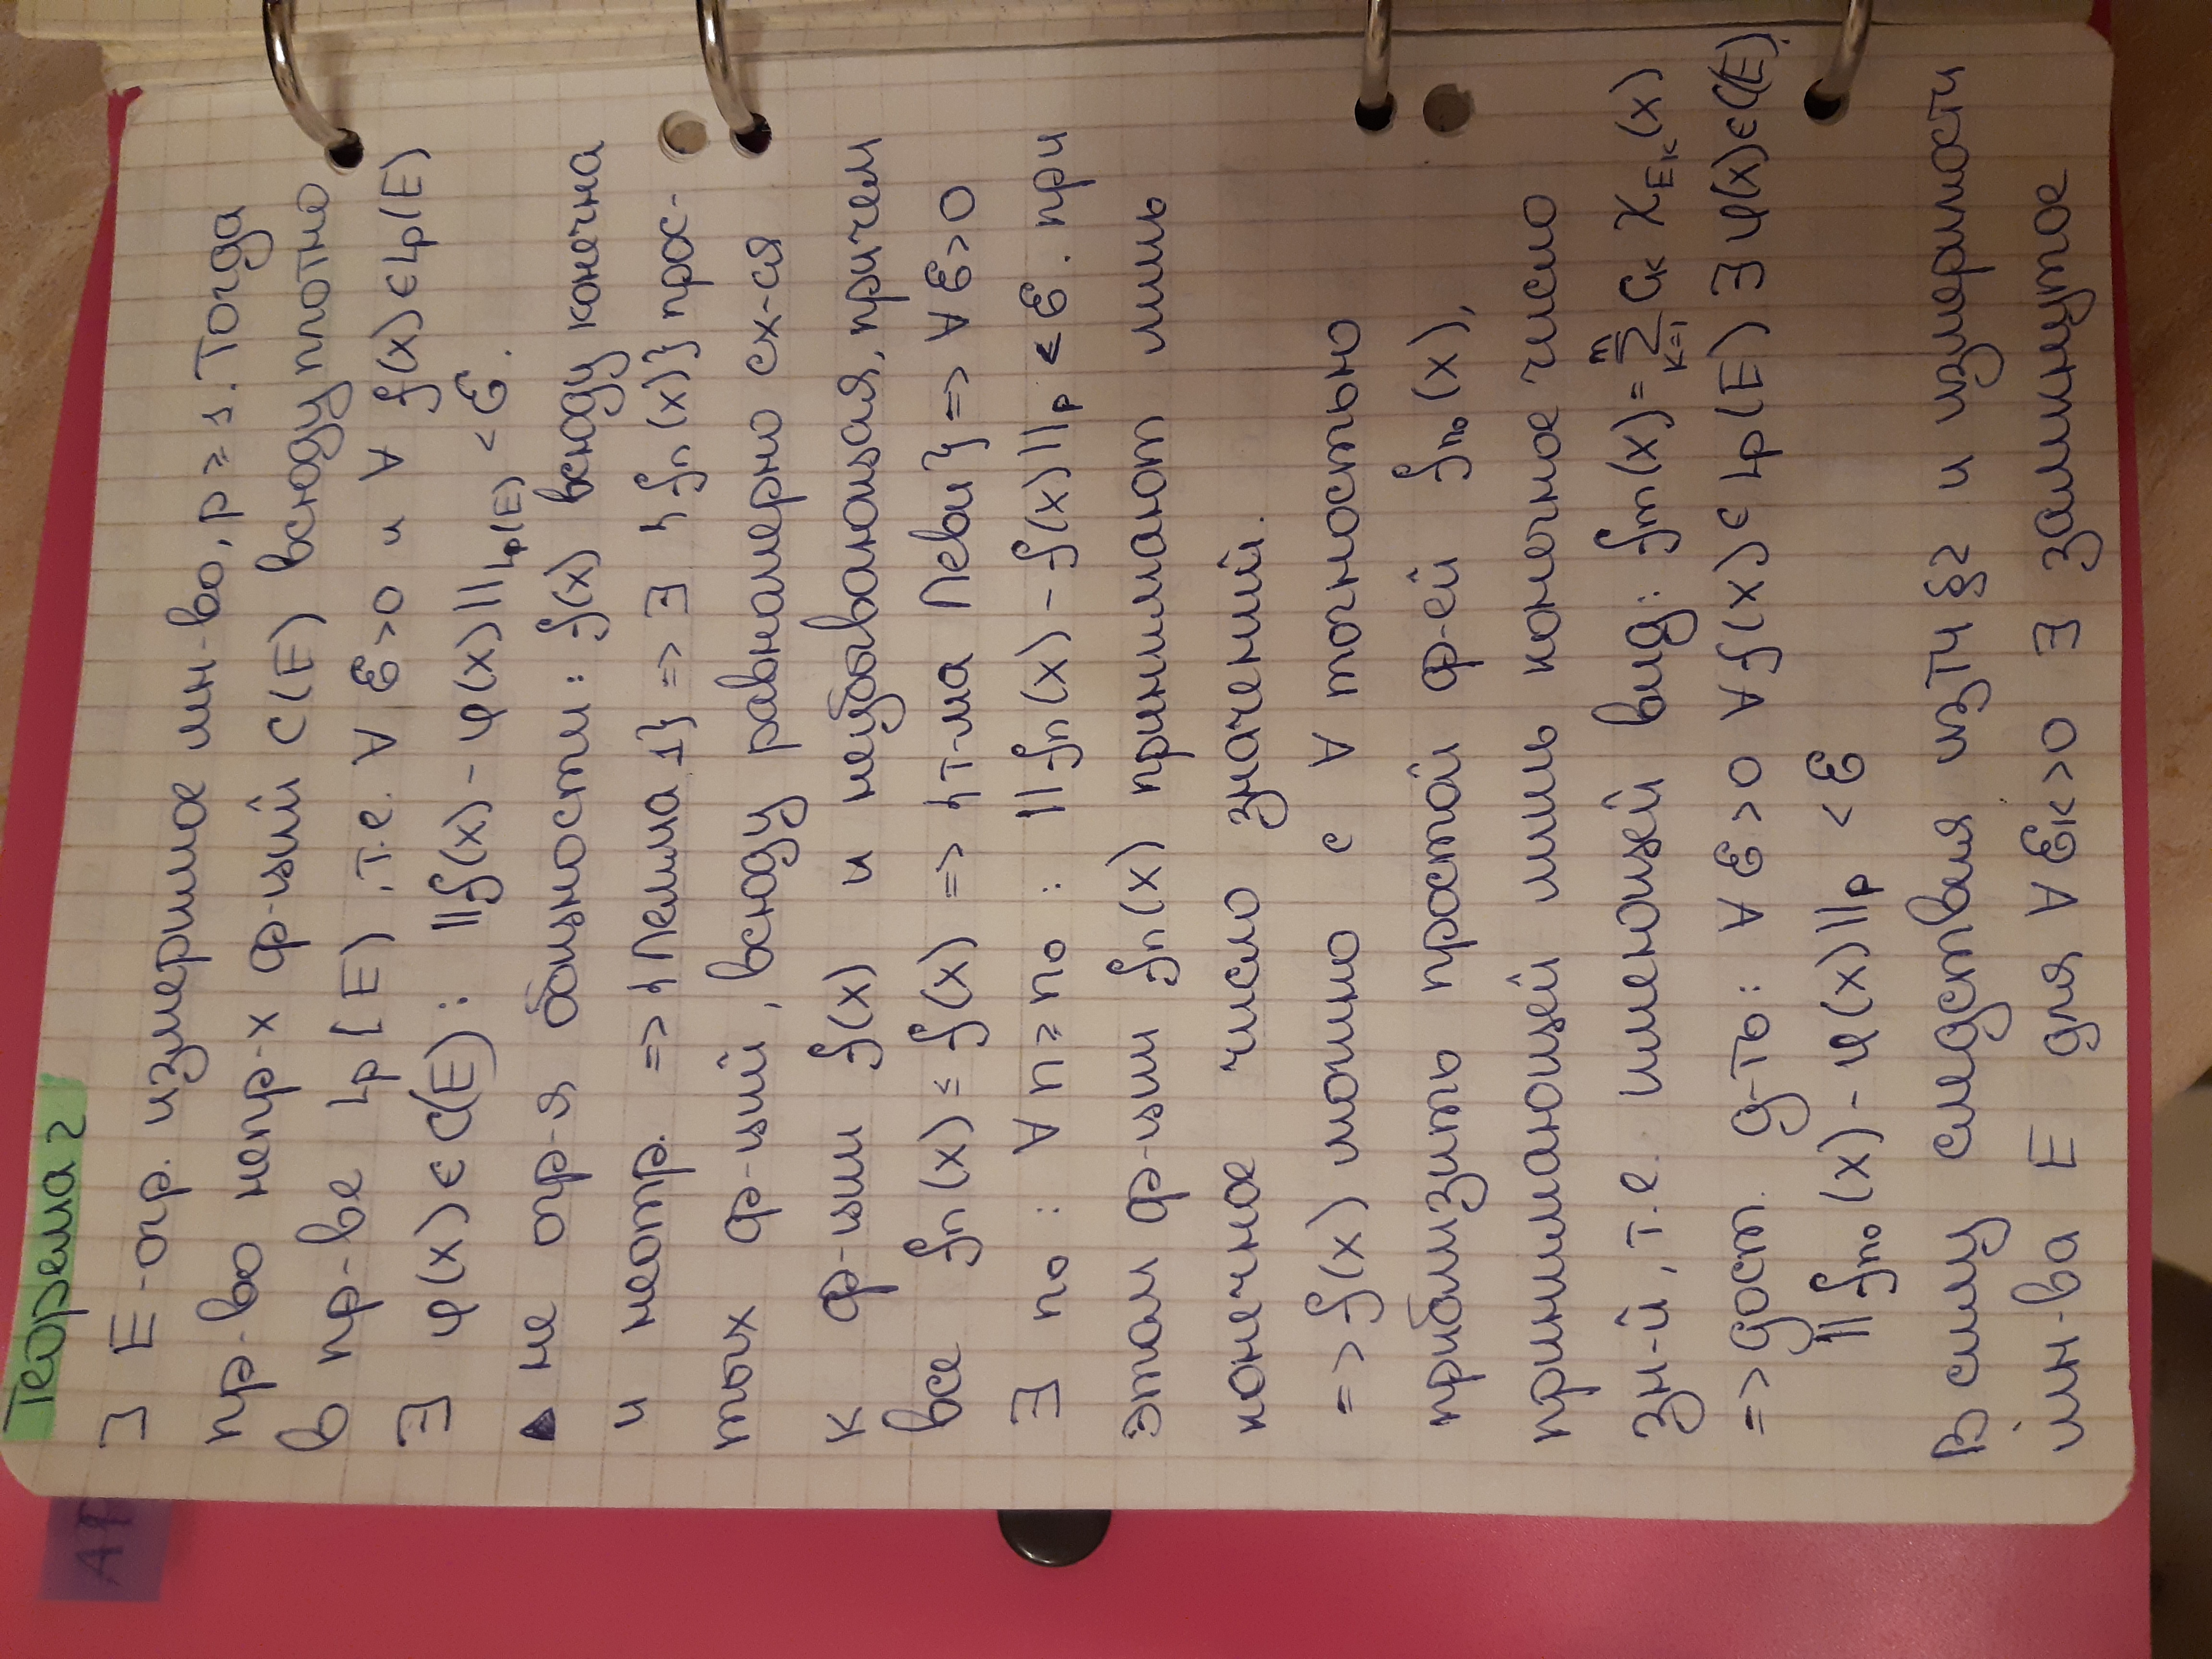 Теорема 2
] E - огр. измеримое мн-во, p ≥ 1. Тогда
пр-во непр-х ф-ций C(E) всюду плотно
в пр-ве Lp[E), т.е. ∀ ℰ>0 и ∀ f(x) ∈ Lp(E)
∃ φ(x) ∈ C(E): ||f(x) - φ(x)||Lp(E) < ℰ.
▲ не огр-я общности: f(x) всюду конечна
и неотр. => {Лемма 1} => ∃ {fn(x)} прос-
тых ф-ций, всюду равномерно сх-ся
к ф-ции f(x) и неубывающая, причем
все fn(x) ≤ f(x) => {т-ма Леви} => ∀ ℰ>0
∃ n0: ∀ n ≥ n0: ||fn(x) - f(x)||p < ℰ. при
этом ф-ции fn(x) принимают лишь
конечное число значений.
=> f(x) можно с ∀ точностью
приблизить простой ф-ей fn0(x),
принимающей лишь конечное число
зн-й, т.е. имеющей вид: fm(x) = ∑ k=1 m ck χEk(x)
=> дост. д-ть: ∀ ℰ>0 ∀ f(x) ∈ Lp(E) ∃ φ(x) ∈ C(E):
||fn0(x) - φ(x)||p < ℰ
В силу следствия из т4 §2 и измеримости
мн-ва E для ∀ ℰk>0 ∃ замкнутое
АР